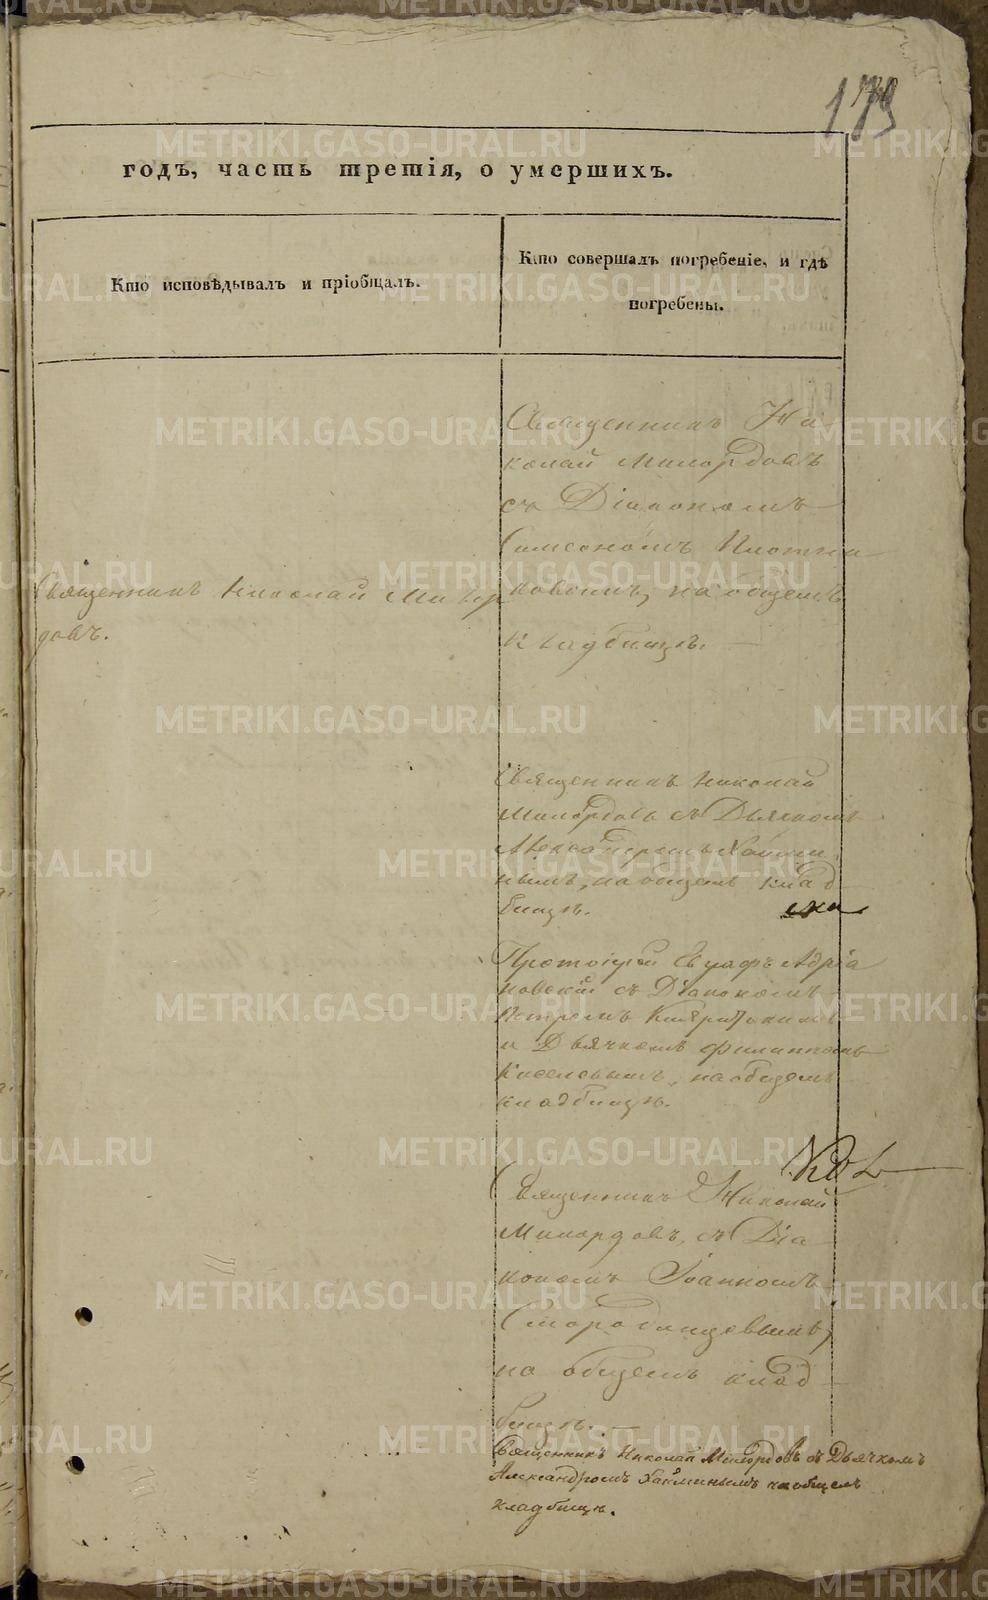 179
годъ, часть третія, о умершихъ.
Кто исповѣдывалъ и пріобщалъ.
Кто совершалъ погребеніе, и гдѣ
погребены.
Священникъ Николай Милор
довъ.
Священникъ Ни
колай Милордовъ
съ Діакономъ
Самсономъ Плотни
ковымъ, на общемъ
кладбищѣ.
Священникъ Николай
Милордовъ съ Дьячкомъ
Александромъ
нымъ, на общемъ клад
бищѣ.
Протоіерей Евграфъ Адріа
новскій съ Діакономъ
Петромъ
и Дьячкомъ Филиппомъ
Киселевымъ, на общемъ
кладбищѣ.
Священникъ Николай
Милордовъ, съ Діа
кономъ Іоанномъ
Стародинцевымъ,
на общемъ клад
бищѣ.
Священникъ Николай Милордовъ съ Дьячкомъ
Александромъ на общемъ
кладбищѣ.
METRIKI.GASO-URAL.RU